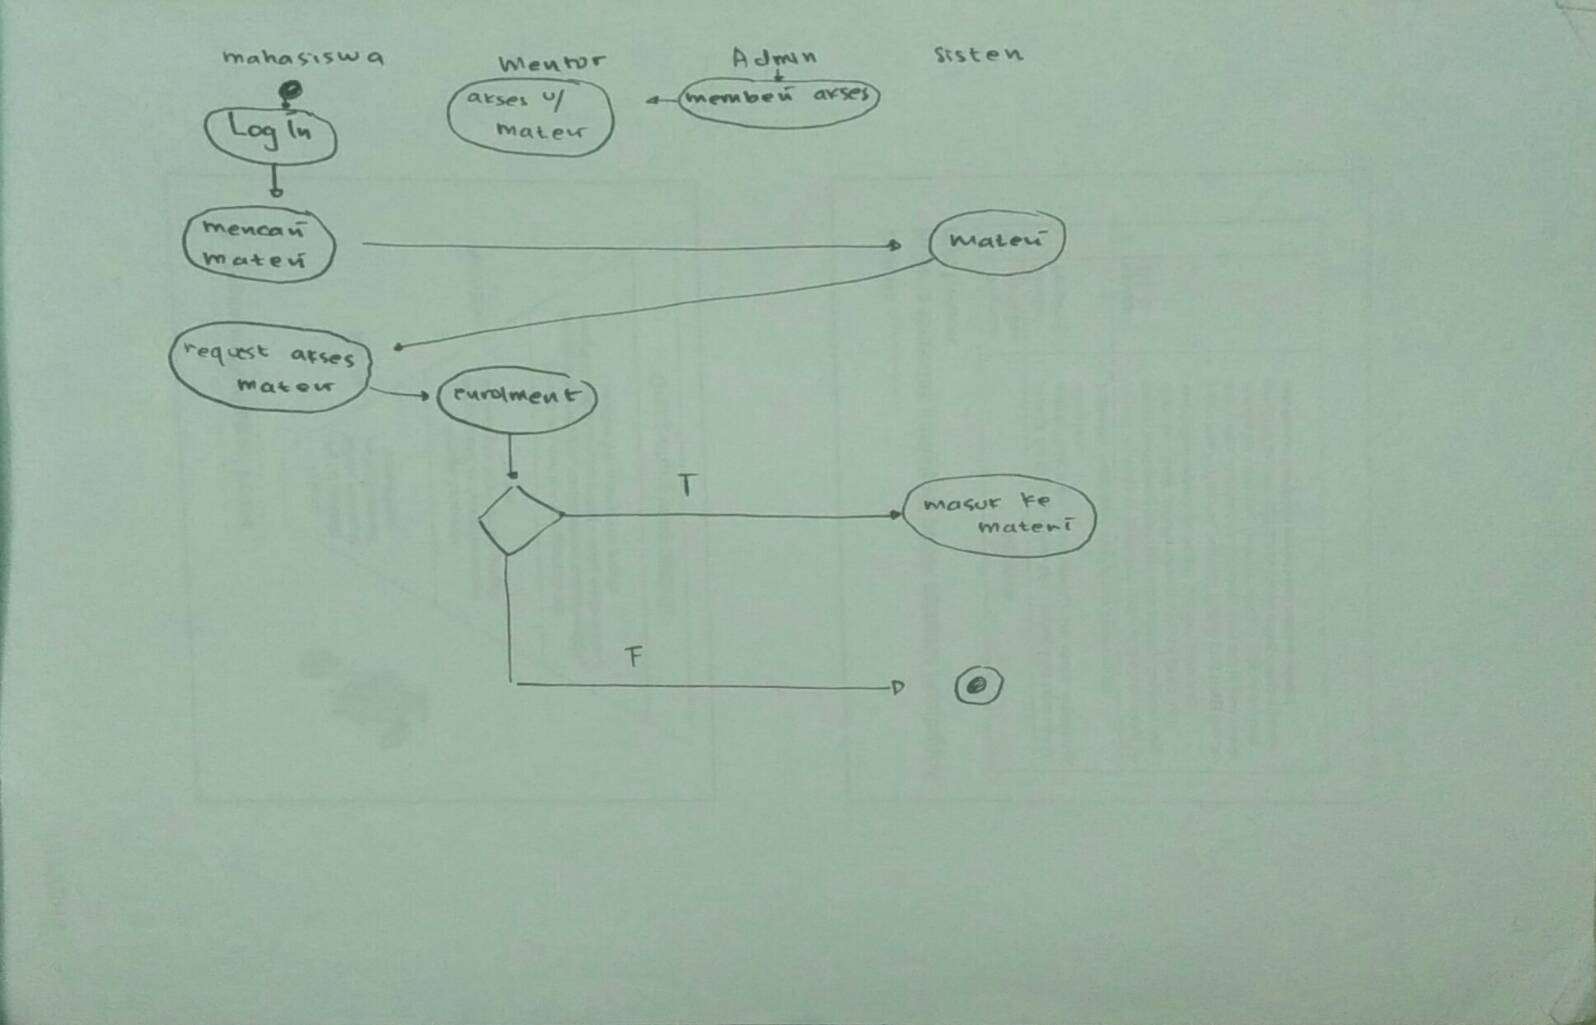 mahasiswa
Mentor
Admin
Sistem
Log In
akses u/
materi
memberi akses
mencari
materi
materi
request akses
materi
enrolment
T
masuk ke
materi
F